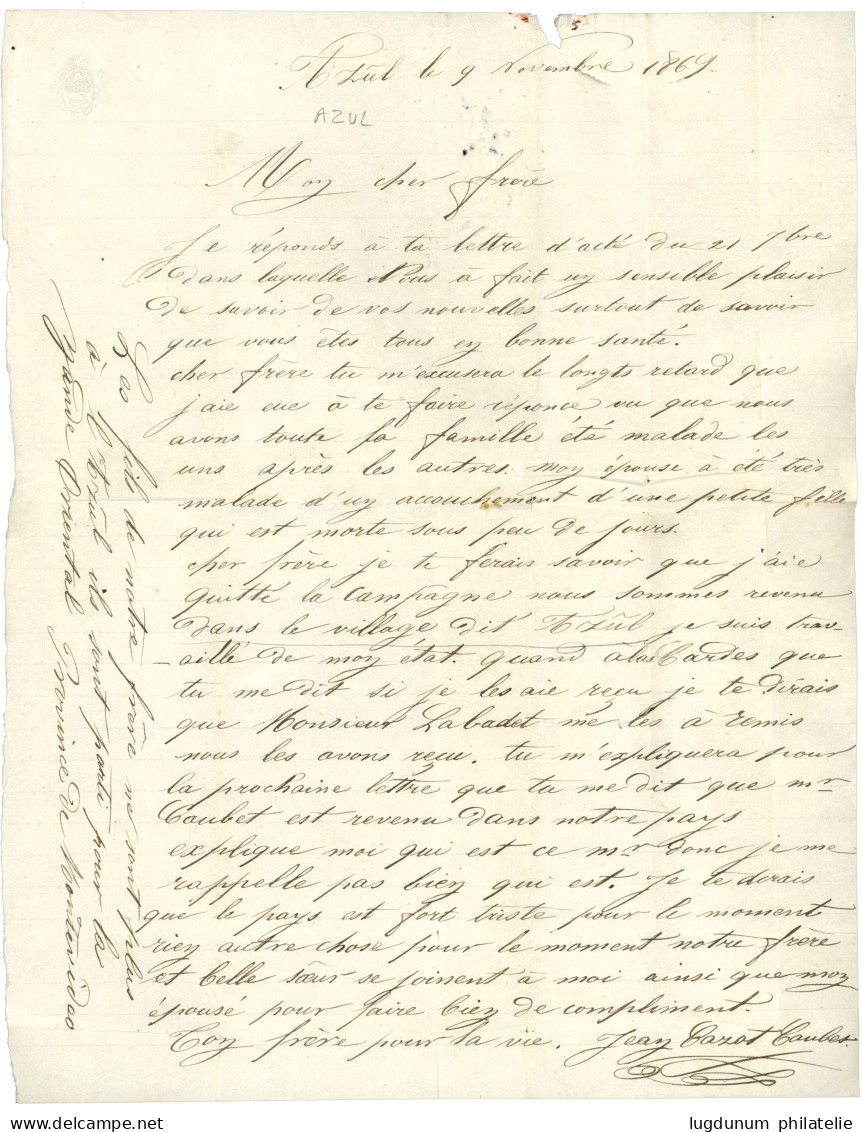 Azûl le 9 Novembre 1869.
AZUL
Moy cher frère
Je réponds à ta lettre d'acté du 21 7bre
dans laquelle Nous à fait uy sensible plaisir
de savoir de vos nouvelles surtout de savoir
que vous êtes tous ey bonne santé.
cher frère tu m'excusera le longts retard que
j'aie eue à te faire réponce vu que nous
avons toute la famille été malade les
uns après les autres. moy épouse à été très
malade d'uy accouchement d'une petite fille
qui est morte sous peu de jours.
cher frère je te ferais savoir que j'aie
quitté la campagne nous sommes revenu
dans le village dit Azûl je suis trav-
-aillé de moy état. quand à las Cardes que
tu me dit si je les aie reçu je te dirais
que Monsieur Labadet me les à remis
nous les avons reçu. tu m'expliquera pour
la prochaine lettre que tu me dit que mr
Caubet est revenu dans notre pays
explique moi qui est ce mr donc je me
rappelle pas biey qui est. Je te dirais
que le pays est fort triste pour le moment
riey autre chose pour le moment notre frère
et belle sœur se joisnent à moi ainsi que moy
épousé pour faire biey de compliment.
Toy frère pour la vie. Jeay Cazot Caubet.
Les fils de notre frère ne sont plus
à l'Azûl ils sont parti pour la
Bande Oriental Province de Montevideo
lugdunum philatelie